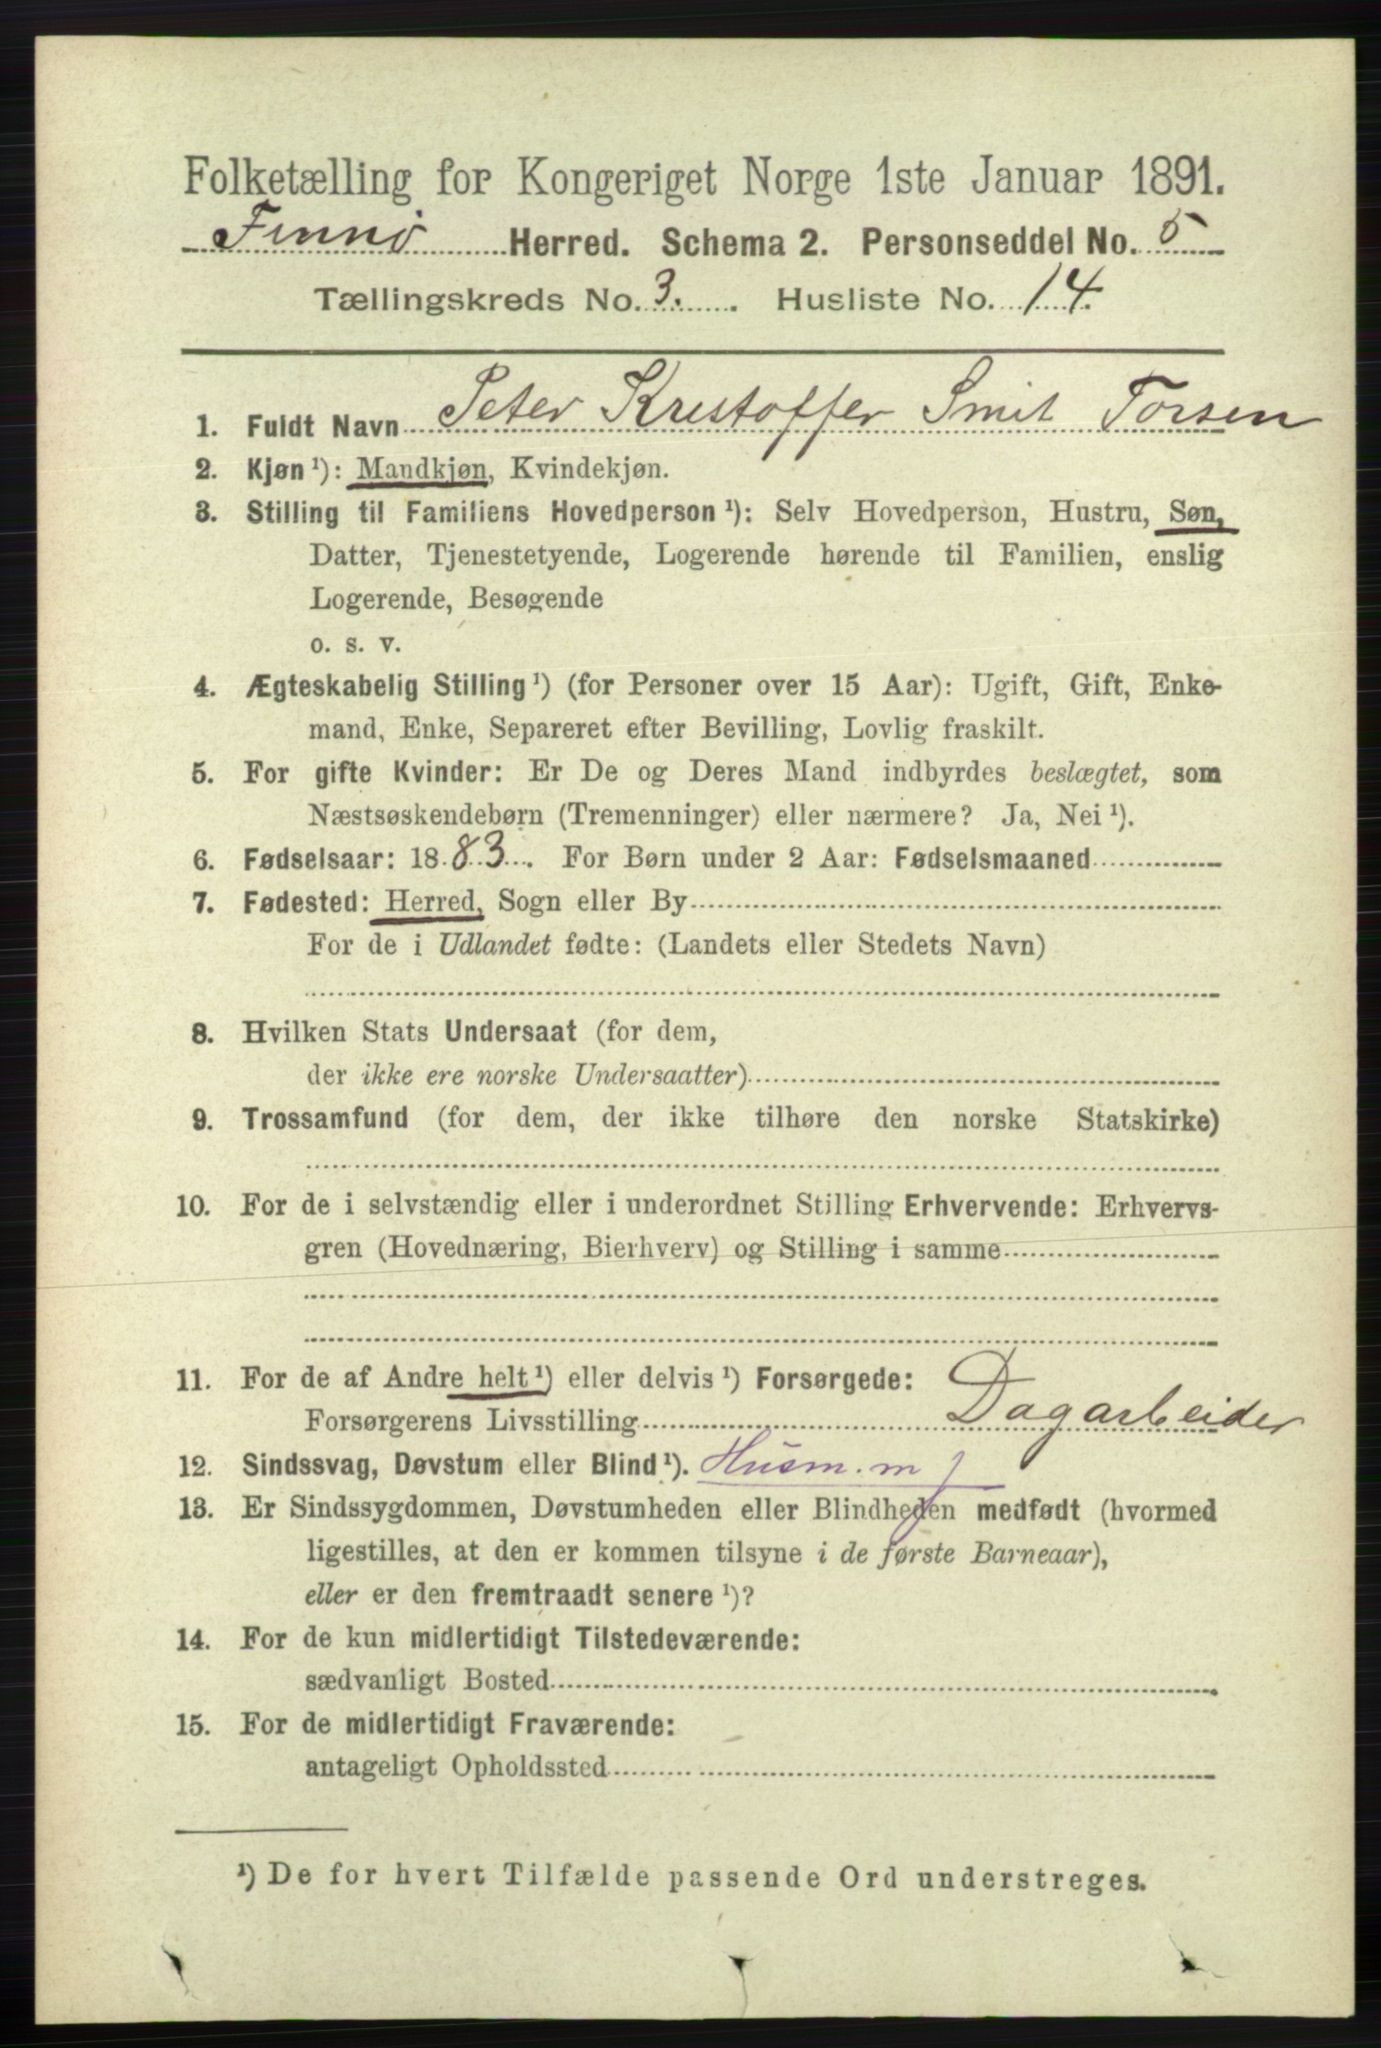 Folketælling for Kongeriget Norge 1ste Januar 1891.
Finnø Herred. Schema 2. Personseddel No. 5
Tællingskreds No. 3. Husliste No. 14.
1. Fuldt Navn Peter Kristoffer Smit Torsen
2. Kjøn ¹): Mandkjøn, Kvindekjøn.
3. Stilling til Familiens Hovedperson ¹): Selv Hovedperson, Hustru, Søn,
Datter, Tjenestetyende, Logerende hørende til Familien, enslig
Logerende, Besøgende
o. s. v.
4. Ægteskabelig Stilling ¹) (for Personer over 15 Aar): Ugift, Gift, Enke-
mand, Enke, Separeret efter Bevilling, Lovlig fraskilt.
5. For gifte Kvinder: Er De og Deres Mand indbyrdes beslægtet, som
Næstsøskendebørn (Tremenninger) eller nærmere? Ja, Nei ¹).
6. Fødselsaar: 1883. For Børn under 2 Aar: Fødselsmaaned
7. Fødested: Herred, Sogn eller By
For de i Udlandet fødte: (Landets eller Stedets Navn)
8. Hvilken Stats Undersaat (for dem,
der ikke ere norske Undersaatter)
9. Trossamfund (for dem, der ikke tilhøre den norske Statskirke)
10. For de i selvstændig eller i underordnet Stilling Erhvervende: Erhvervs-
gren (Hovednæring, Bierhverv) og Stilling i samme
11. For de af Andre helt ¹) eller delvis ¹) Forsørgede:
Forsørgerens Livsstilling Dagarbeider
12. Sindssvag, Døvstum eller Blind ¹). Husm. m j
13. Er Sindssygdommen, Døvstumheden eller Blindheden medfødt (hvormed
ligestilles, at den er kommen tilsyne i de første Barneaar),
eller er den fremtraadt senere ¹)?
14. For de kun midlertidigt Tilstedeværende:
sædvanligt Bosted
15. For de midlertidigt Fraværende:
antageligt Opholdssted
¹) De for hvert Tilfælde passende Ord understreges.